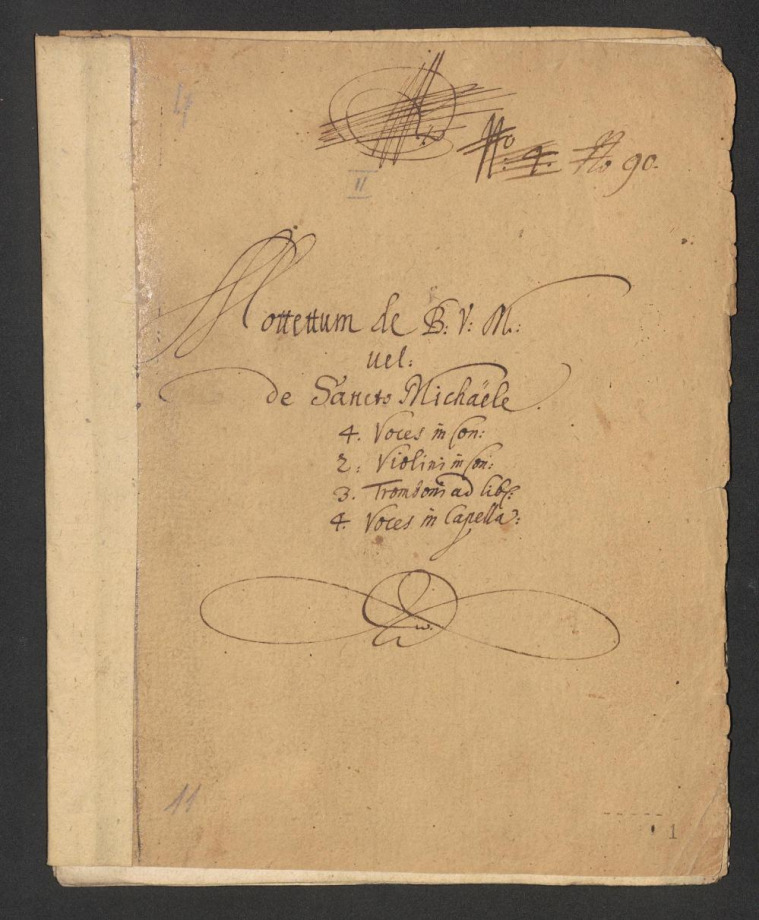 4
No. 4. No 90.
II
Mottettum de B: V: M:
uel:
de Sancto Michaële.
4. Voces in Con:
2: Violini in Con:
3. Tromboni ad lib:
4. Voces in Capella:
w.
11
1